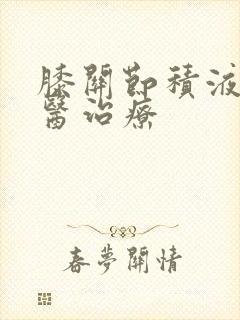 膝關節積液
醫治療
春夢關情